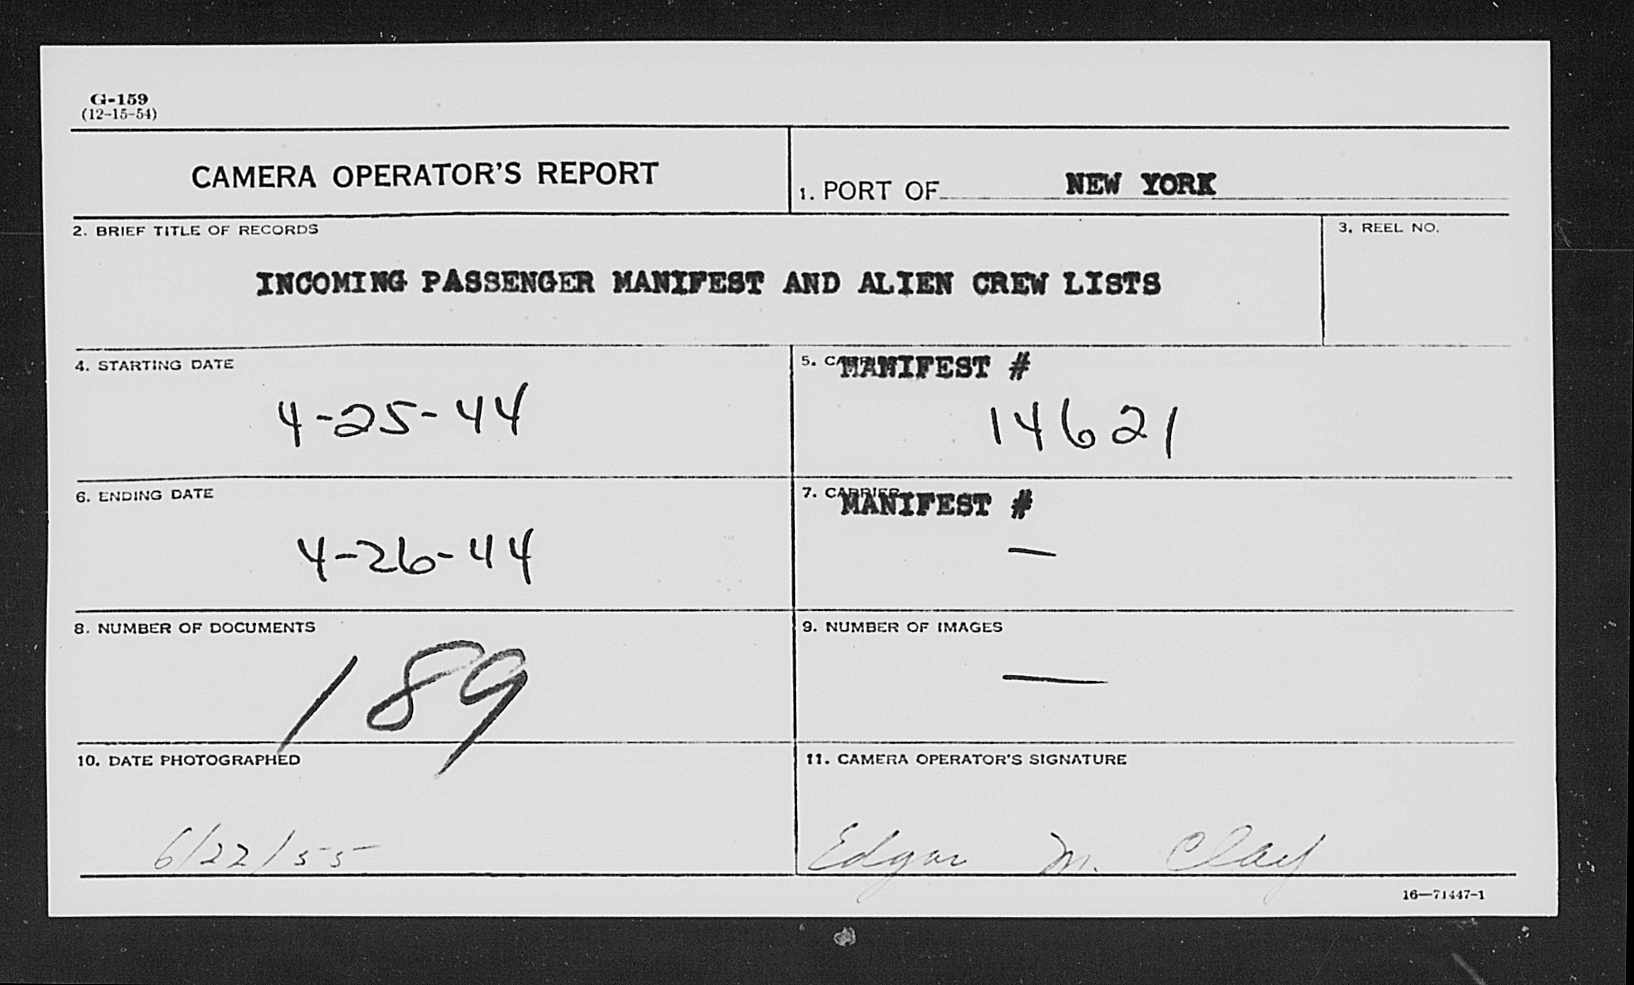 G-159
(12-15-54)
CAMERA OPERATOR'S REPORT
1. PORT OF NEW YORK
2. BRIEF TITLE OF RECORDS
INCOMING PASSENGER MANIFEST AND ALIEN CREW LISTS
3. REEL NO.
4. STARTING DATE
4-25-44
5. MANIFEST #
14621
6. ENDING DATE
4-26-44
7. CARRIER
MANIFEST #
—
8. NUMBER OF DOCUMENTS
189
9. NUMBER OF IMAGES
—
10. DATE PHOTOGRAPHED
6/22/55
11. CAMERA OPERATOR'S SIGNATURE
Edgar M. Clay
16—71447-1